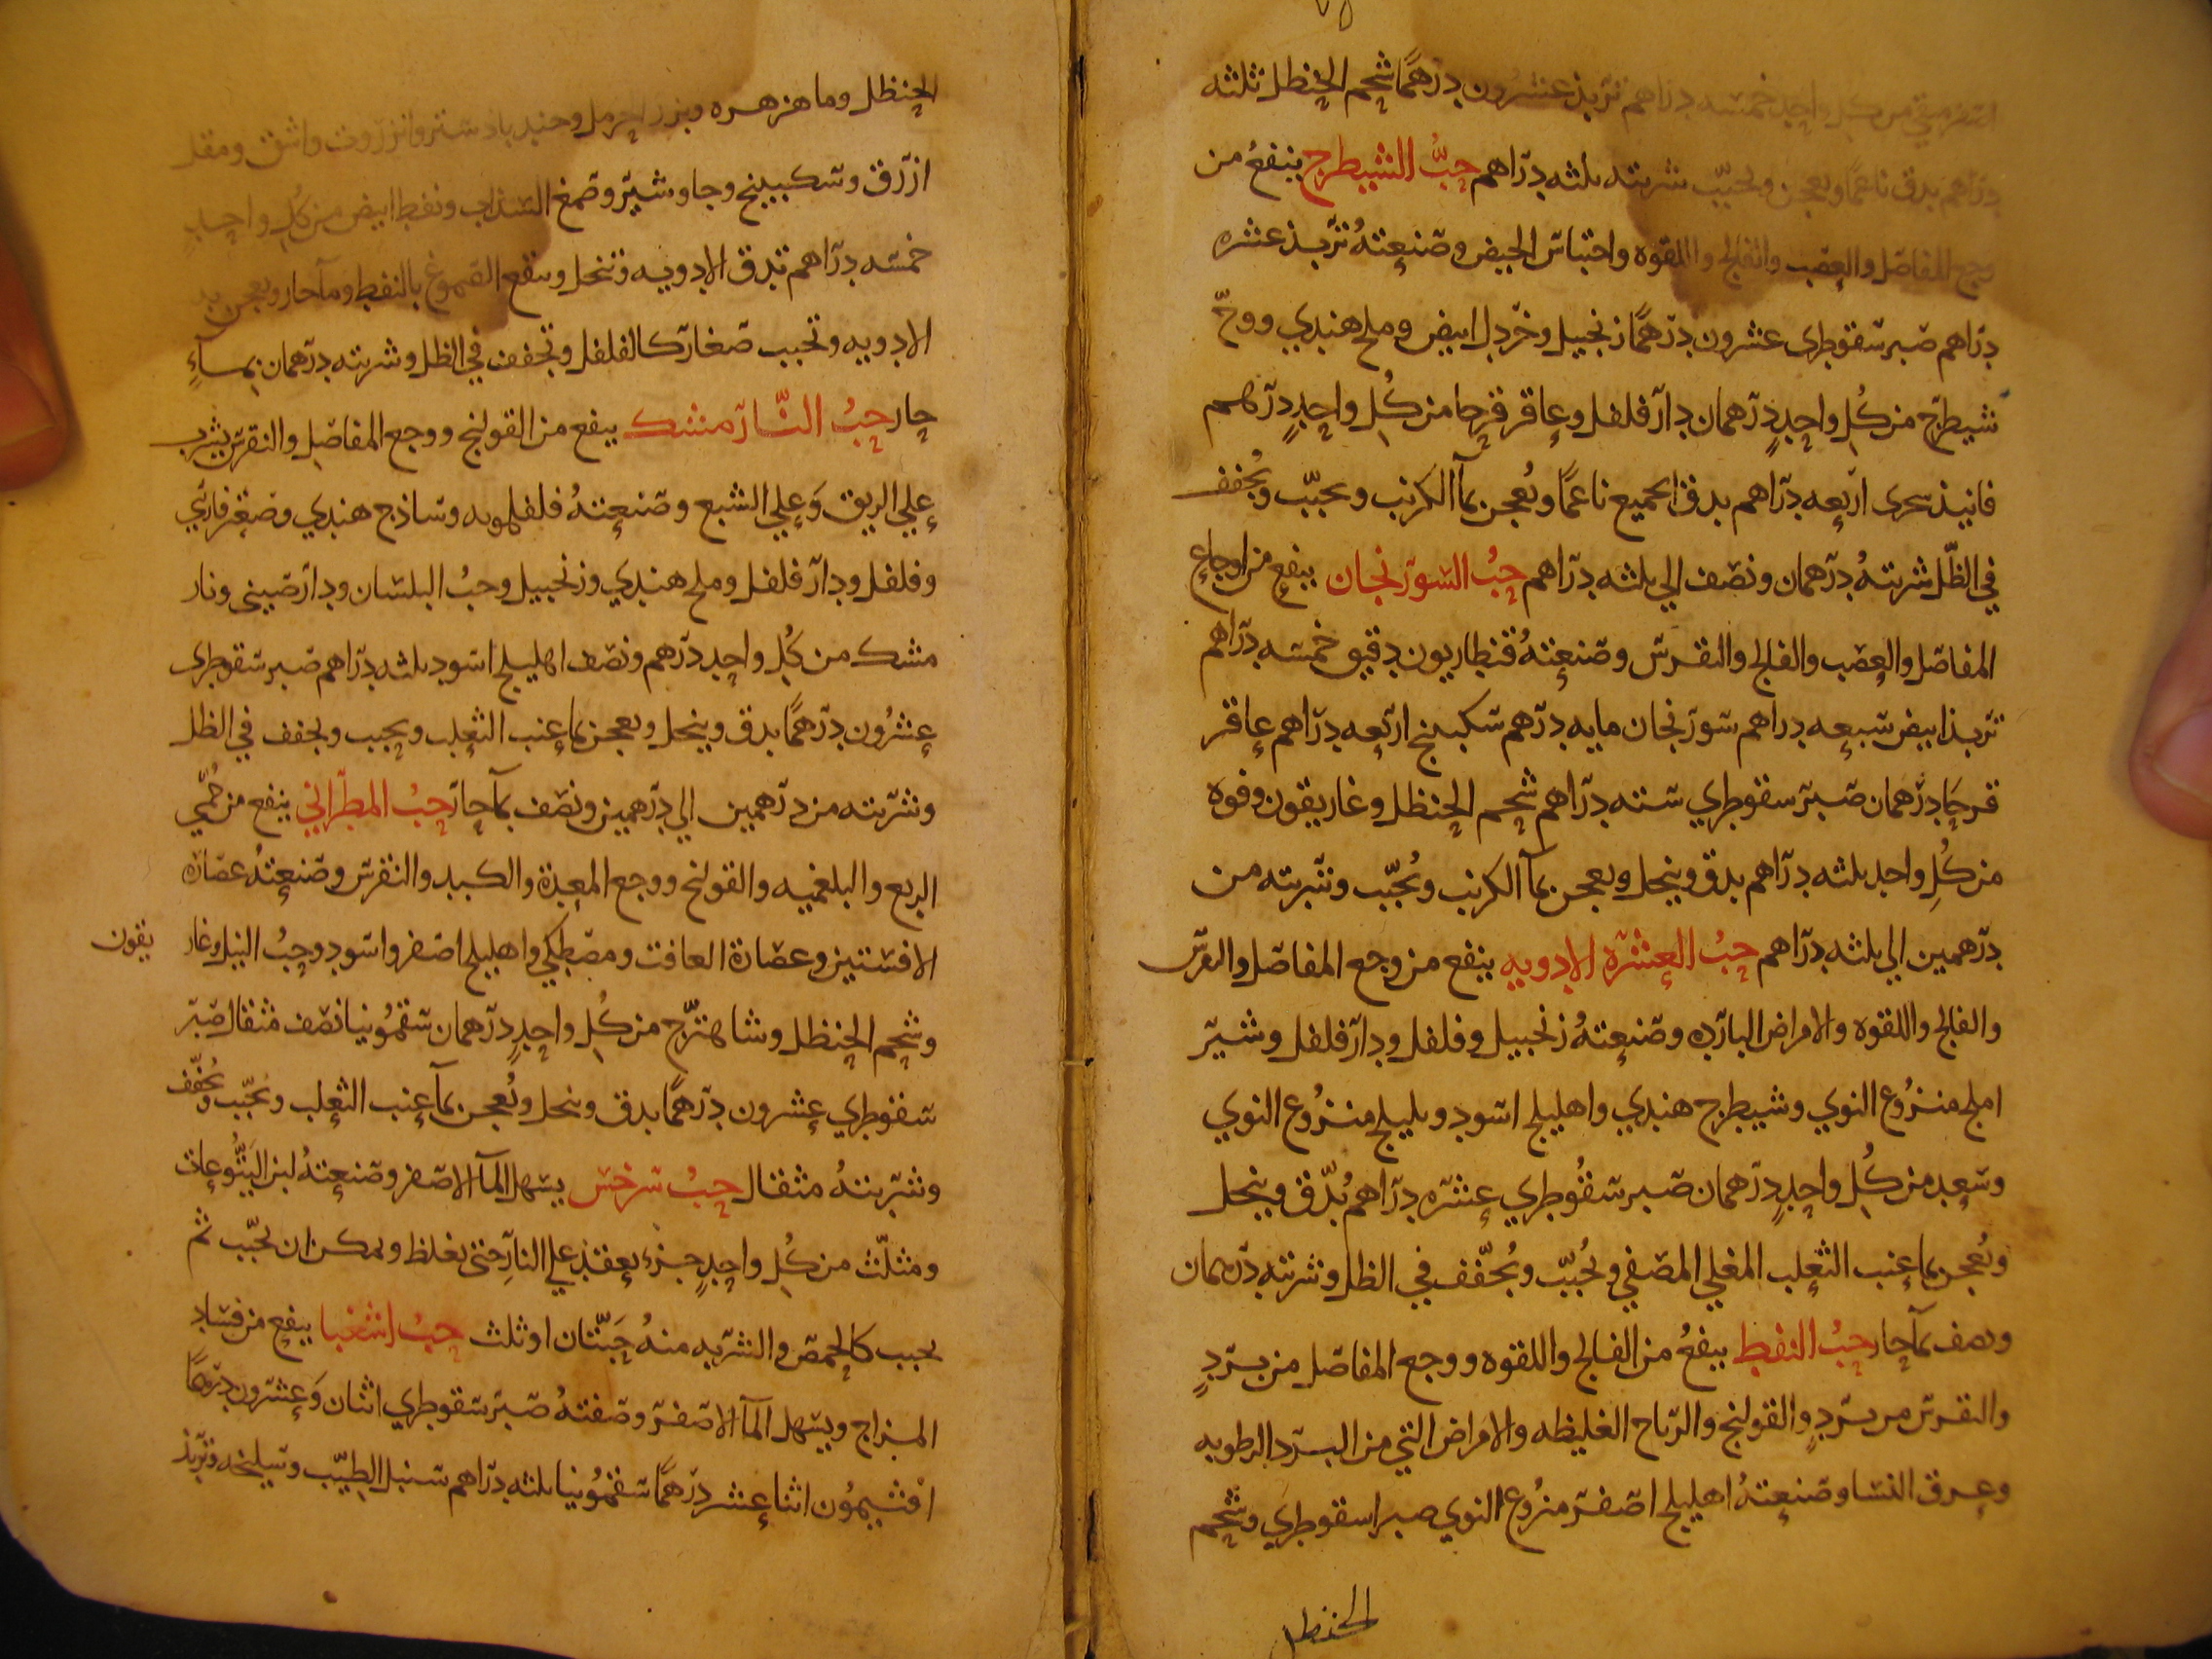 اصفر منقي من كل واحد خمسه دراهم تربد عشرون درهمًا شحم الحنظل ثلثه
دراهم يدق ناعمًا ويعجن ويحبّب شربته ثلثه دراهم حبُّ الشيطرج ينفعُ من
وجع المفاصل والعصب والفالج واللقوه واحتباس الحيض وصنعتهُ تربد عشره
دراهم صبر سقوطرى عشرون درهمًا زنجبيل وخردل ابيض وملح هندي ووجّ
شيطرج من كُلِ واحدٍ درهمان دار فلفل وعاقر قرحا من كُلِ واحدٍ درهم
فانيد سجرى اربعه دراهم يدق الجميع ناعمًا ويُعجن بمآ الكرنب ويحبّب ويُجفف
في الظّل شربتهُ درهمان ونصف الي ثلثه دراهم حبُ السورنجان ينفع من اوجاع
المفاصل والعصب والفالج والنقرس وصنعتهُ قنطاريون دقيق خمسه دراهم
تربد ابيض سبعه دراهم سورنجان مايه درهم سكبينج اربعه دراهم عاقر
قرحَا درهمان صبر سقوطري سته دراهم شحم الحنظل وغاريقون وفوه
من كُلِ واحد ثلثه دراهم يدق وينخل ويعجن بمآ الكرنب ويُحبّب وشربته من
درهمين الي ثلثه دراهم حبُ العشرة الادويه ينفع من وجع المفاصل والنقرس
والفالج واللقوه والامراض البارده وصنعتهُ زنجبيل وفلفل ودار فلفل وشير
املج منزُوع النوي وشيطرج هندي واهليلج اسود وبليلج منزُوع النوي
وسعد من كُلِ واحدٍ درهمان صبر سقُوطري عشره دراهم يُدّق وينخل
ويُعجن بما عنب الثعلب المغلي المصفي ويُحبّب ويُجّفف في الظل وشربته درهمان
ونصف بمآ حار حبُ النفط ينفعُ من الفالج واللقوه ووجع المفاصل من بردٍ
والنقرس من بردٍ والقولنج والرياح الغليظه والامراض التي من البرد والرطوبه
وعرق النسا وصنعتهُ اهليلج اصفر منزُوع النوي صبر اسقوطري وشحم
الحنظل
الحنظل وماهزهره وبزر الحرمل وجند بادستر وانزروت واشق ومقل
ازرق وسكبينج وجاوشير وصمغ السذاب ونفط ابيض من كُلِ واحدٍ
خمسه دراهم تدق الادويه وتنخل وينقع الصموغ بالنفط ومآ حار ويعجن به
الادويه وتحبب صغار كالفلفل وتجفف في الظل وشربته درهمان بمآءٍ
حار حبُ النّارمشك ينفع من القولنج ووجع المفاصل والنقرس يشرب
علي الريق وَعلي الشبع وصنعتهُ فلفلمويه وساذج هندي وصعتر فارسي
وفلفل ودار فلفل وملح هندي وزنجبيل وحبُ البلسان ودار صيني ونار
مشك من كُلِ واحد درهم ونصف اهليلج اسود ثلثه دراهم صبر سقوطرى
عشرُون درهمًا يدق وينخل ويعجن بما عنب الثعلب ويحبب ويجفف في الظل
وشربته من درهمين الي درهمين ونصف بمآ حار حبُ المطراني ينفع من حُمّي
الربع والبلغميه والقولنج ووجع المعدة والكبد والنقرس وصنعتهُ عصارة
الافسنتين وعصارة الغافت ومصطكي واهليلج اصفر واسود وحبُ النيل وغار يقون
وشحم الحنظل وشاهترّج من كُلِ واحدٍ درهمان سقمُونيا نصف مثقال صبر
سقوطري عشرون درهمًا يدق وينخل ويُعجن بمآ عنب الثعلب ويحبّب ويُجفّف
وشربتهُ مثقال حبُ سرخس يسهل المآ الاصفر وصنعتهُ لبن اليتُّوعات
ومثلّث من كُلِ واحدٍ جزء يعقد علي النار حتى يغلظ ويمكن ان يحبّب ثم
يحبب كالحمص والشربه منهُ حَبّتان او ثلث حبُ اشفيا ينفع من فساد
المزاج ويسهل المآ الاصفر وصفتهُ صبر سقوطري اثنان وَعشرون درهمًا
افتيمُون اثنا عشر درهمًا سقمُونيا ثلثه دراهم سنبل الطيّب وسليخه وتربد